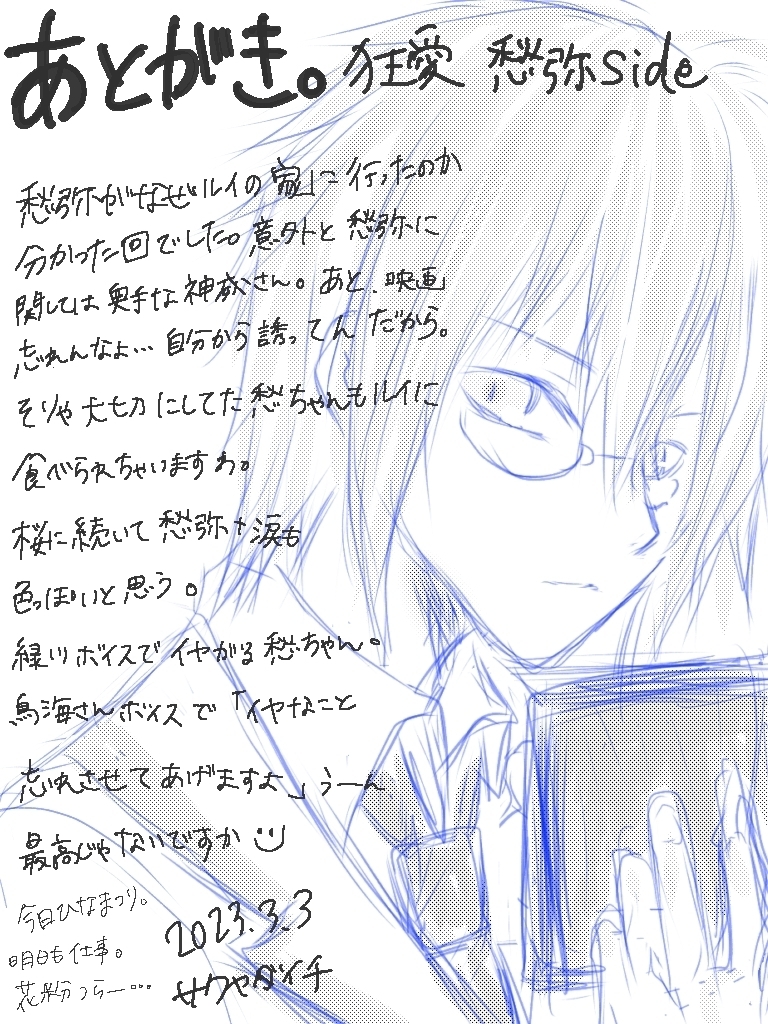 あとがき。狂愛 愁弥side
愁弥がなぜルイの家に行ったのか
分かった回でした。意外と愁弥に
関しては奥手な神威さん。あと、映画
忘れんなよ…自分から誘ってんだから。
そりゃ大切にしてた愁ちゃんもルイに
食べられちゃいますわ。
桜に続いて愁弥+涙も
色っぽいと思う。
緑川ボイスでイヤがる愁ちゃん。
鳥海さんボイスで「イヤなこと
忘れさせてあげますよ」うーん
最高じゃないですか
今日ひなまつり。
明日も仕事。
花粉つらー…
2023.3.3
サクヤダイチ